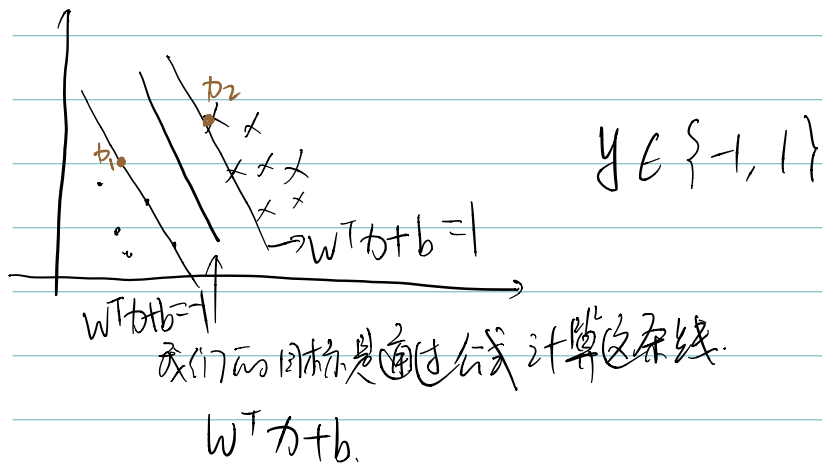 x₂
x₁
y ∈ {-1, 1}
→ wᵀx+b=1
wᵀx+b=-1
我们的目标是通过公式计算这条线.
wᵀx+b.